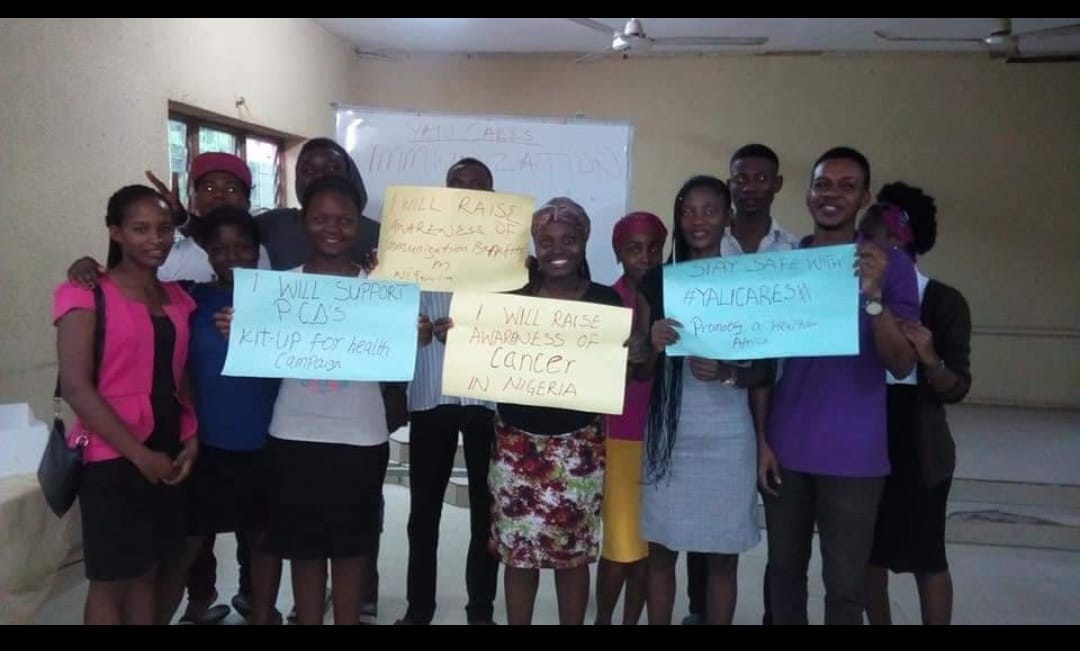 YALICARES
IMMUNIZATION
I WILL RAISE
AWARENESS OF
Immunization Benefits
In
Nigeria
I WILL SUPPORT
PCD'S
KIT-UP FOR health
Campaign
I WILL RAISE
AWARENESS OF
Cancer
IN NIGERIA
STAY SAFE WITH
#YALICARES
Promotes a Healthier
Africa